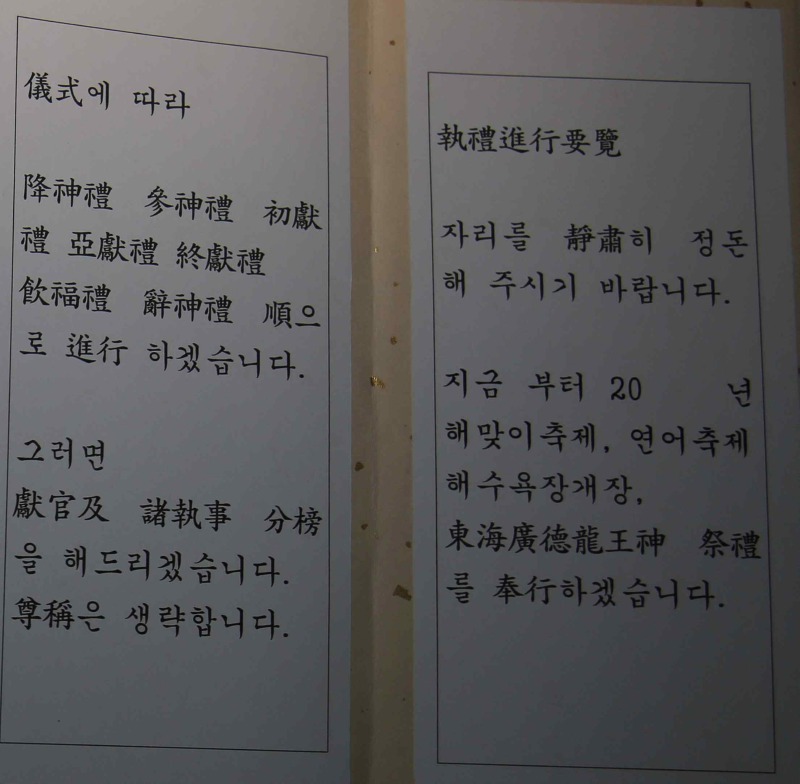 執禮進行要覽
자리를 靜肅히 정돈
해 주시기 바랍니다.
지금 부터 20 년
해맞이축제, 연어축제
해수욕장개장,
東海廣德龍王神 祭禮
를 奉行하겠습니다.
儀式에 따라
降神禮 參神禮 初獻
禮 亞獻禮 終獻禮
飮福禮 辭神禮 順으
로 進行 하겠습니다.
그러면
獻官及 諸執事 分榜
을 해드리겠습니다.
尊稱은 생략합니다.